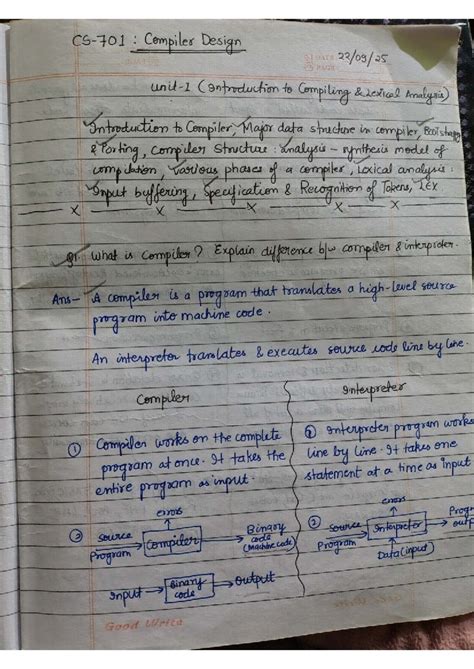 CS-701 : Compiler Design
DATE 22/09/25
PAGE
Unit-I (Introduction to Compiling & Lexical Analysis)
Introduction to Compiler, Major data structure in compiler, Bootstrapp
& Porting, Compiler Structure : analysis - synthesis model of
compilation, various phases of a compiler, Lexical analysis :
Input buffering, Specification & Recognition of Tokens, LEX
x x x x x
Q1. What is Compiler? Explain difference b/w compiler & interpreter.
Ans- A compiler is a program that translates a high-level source
program into machine code.
An interpretor translates & executes source code line by line.
Compiler
① Compiler works on the complete
program at once. It takes the
entire program as input.
②
errors
Source
Program
Compiler
Binary
code
(Machine code)
Input
Binary
code
Output
Interpreter
① Interpreter program works
line by line. It takes one
statement at a time as input
②
errors
Source
Program
Interpreter
Data (input)
Progr
outp
Good Write